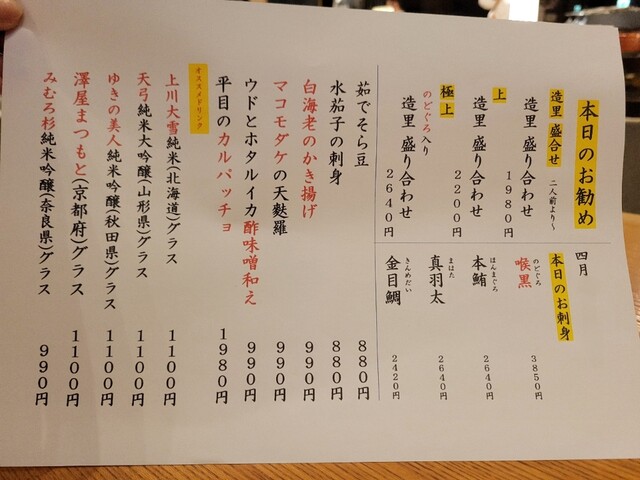 本日のお勧め
造里 盛合せ 二人前より〜
造里 盛り合わせ
1980円
上
造里 盛り合わせ
2200円
極上
のどぐろ入り
造里 盛り合わせ
2640円
四月
本日のお刺身
のどぐろ
喉黒 3850円
ほんまぐろ
本鮪 2640円
まはた
真羽太 2640円
きんめだい
金目鯛 2420円
茹でそら豆 880円
水茄子の刺身 880円
白海老のかき揚げ 990円
マコモダケの天麩羅 990円
ウドとホタルイカ酢味噌和え 990円
平目のカルパッチョ 1980円
オススメドリンク
上川大雪純米(北海道)グラス 1100円
天弓純米大吟醸(山形県)グラス 1100円
ゆきの美人純米吟醸(秋田県)グラス 1100円
澤屋まつもと(京都府)グラス 1100円
みむろ杉純米吟醸(奈良県)グラス 990円